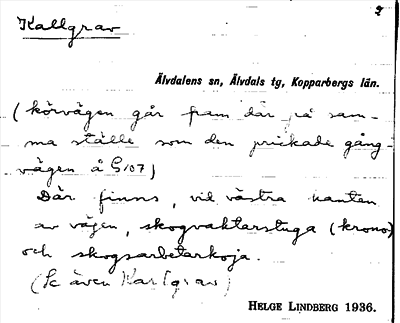 2
Kallgrav
Älvdalens sn, Älvdals tg, Kopparbergs län.
(körvägen går fram där på sam-
ma ställe som den prickade gång-
vägen å G107)
Där finns, vid västra kanten
av vägen, skogvaktarstuga (krono)
och skogsarbetarkoja.
(Se även Karlgrav)
HELGE LINDBERG 1936.